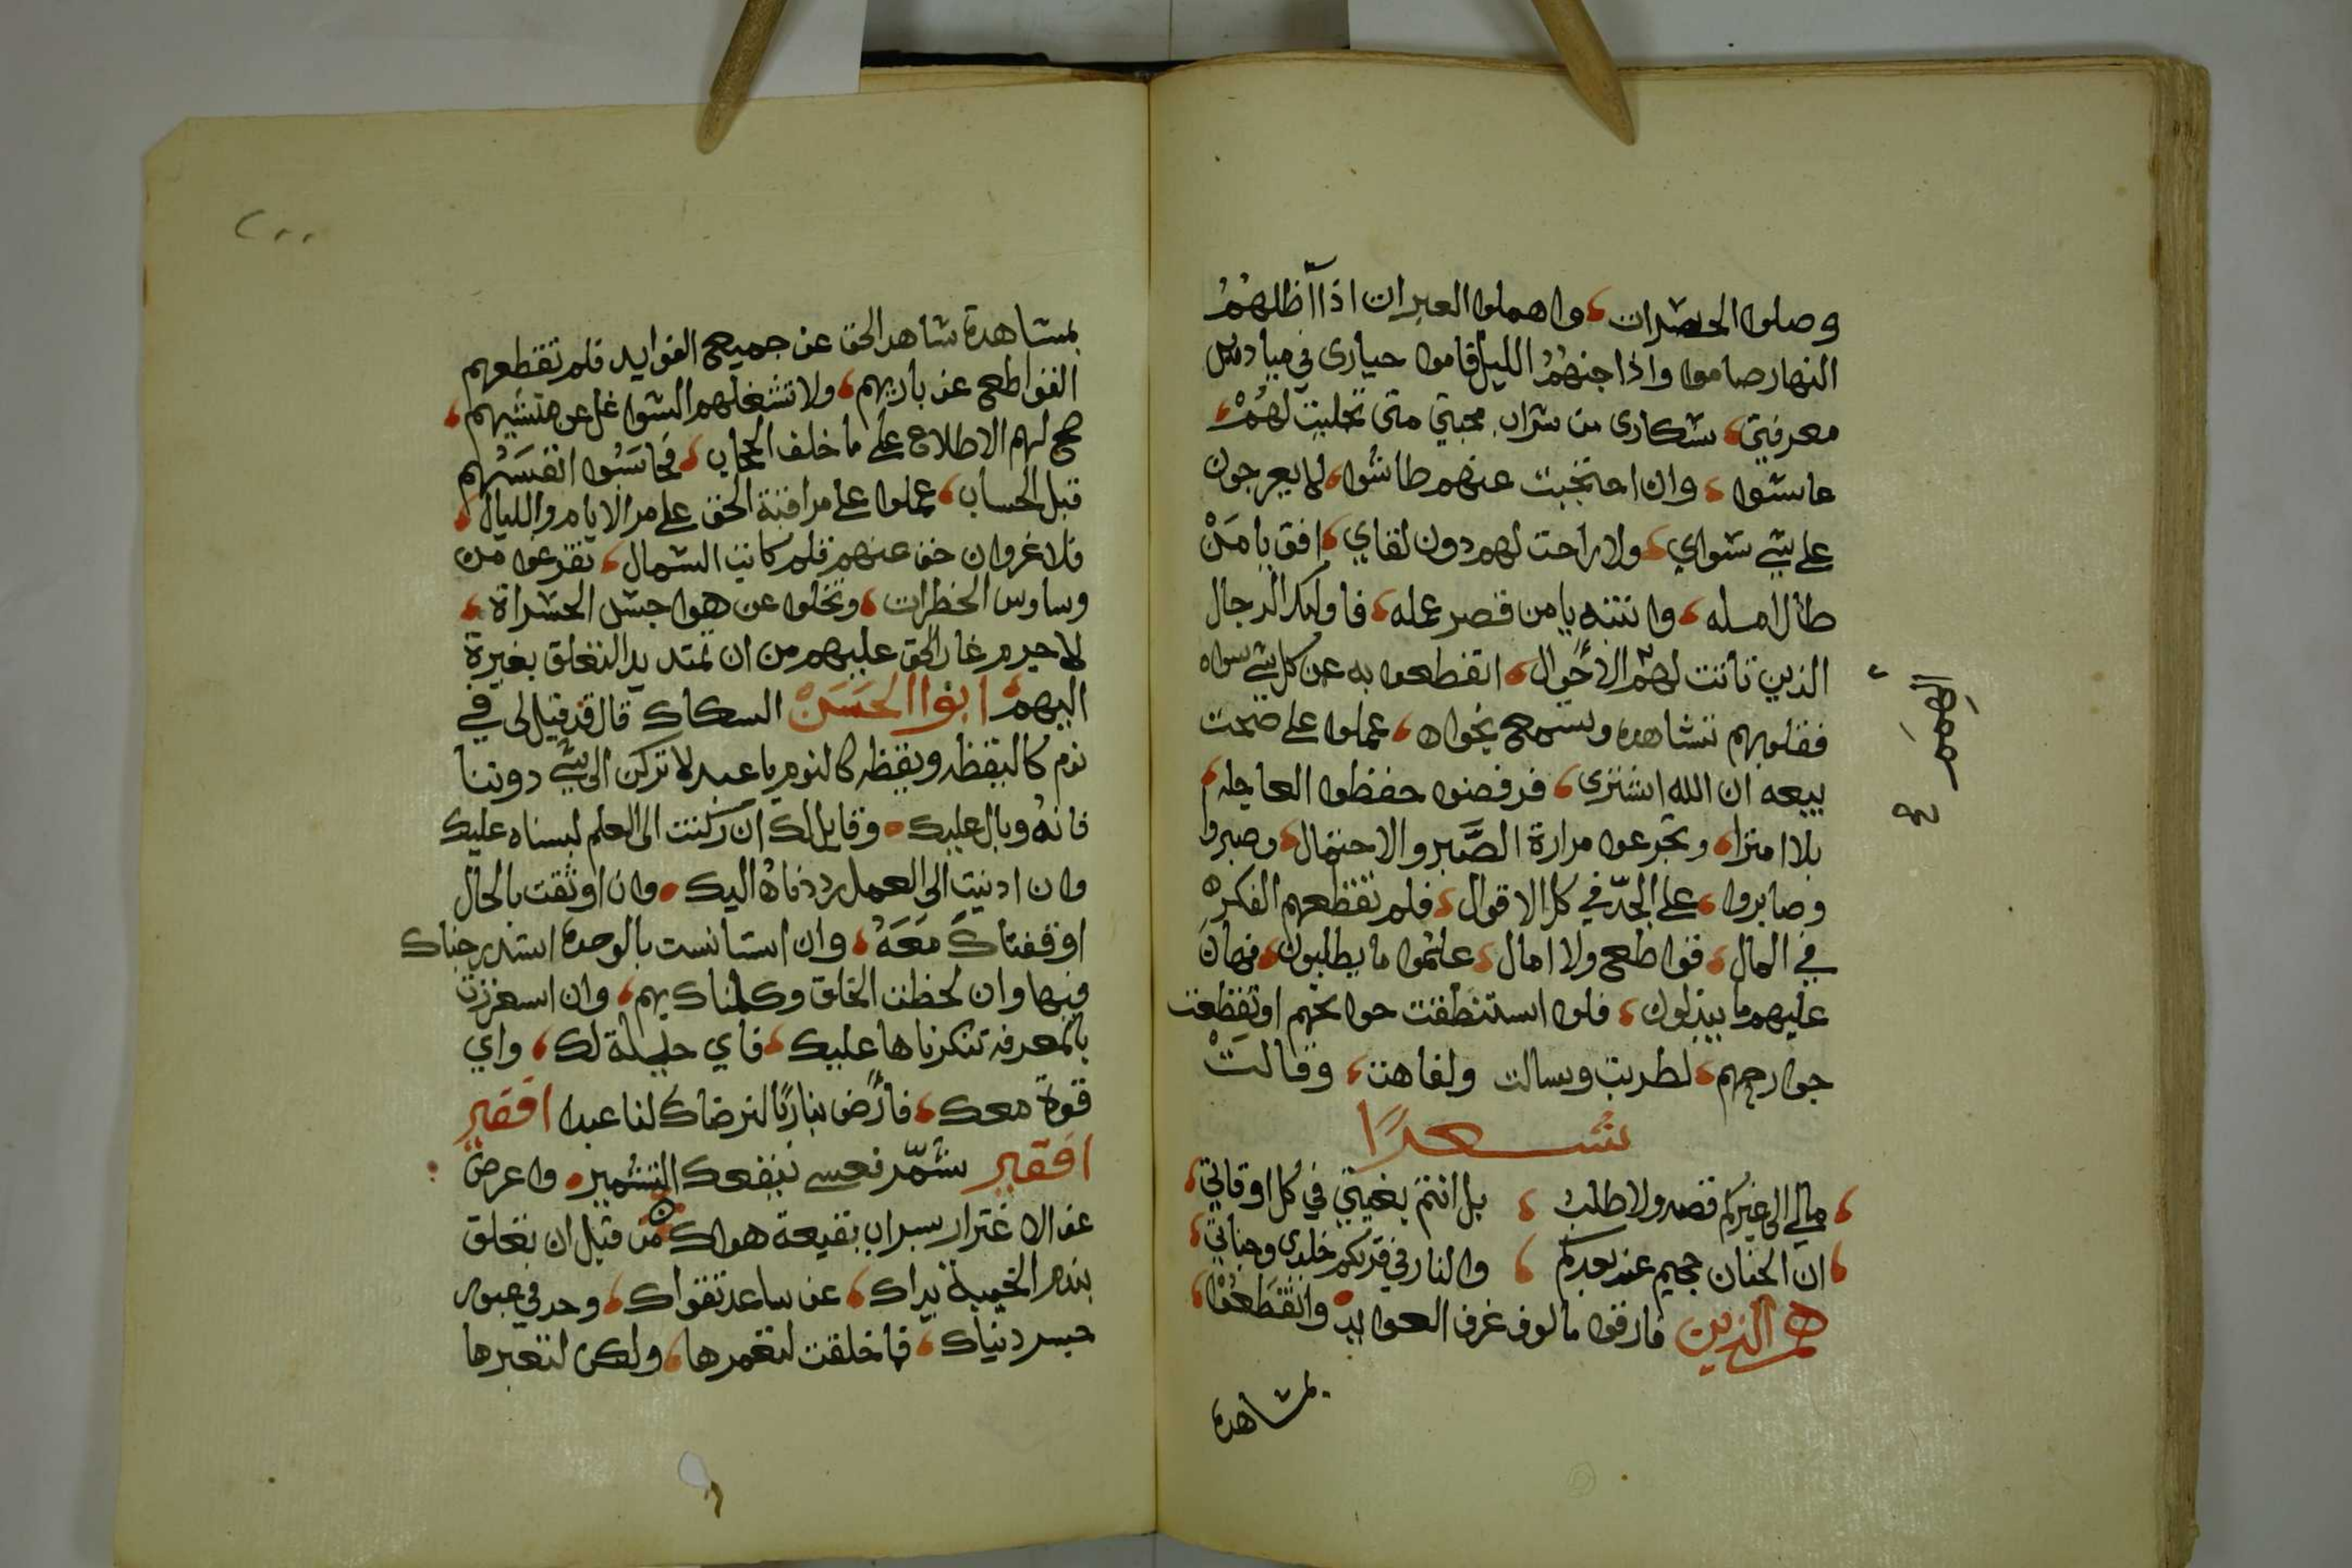 وصلوا الحضرات، واهملوا العبرات اذا اظلهم
النهار صاموا واذا جنهم الليل قاموا حيارى في ميادين
معرفتي، سكارى من شراب محبتي متى تجليت لهم،
عاشوا، وان احتجبت عنهم طاشوا، لا يعرجون
على شي سواي، ولا راحت لهم دون لقاي، افق يا من
طال امله، وانتبه يا من قصر عمله، فاوليك الرجال
الذين تأتت لهم الأحوال، انقطعوا به عن كل شي سواه
فقلوبهم تشاهده وتسمع نجواه، عملوا على صحت
بيعه ان الله اشترى، فرفضوا حفظوا العاجله
بلا امترا، وتجرعوا مرارة الصَّبر والاحتمال، وصبروا
وصابروا، على الجدّ في كل الاقوال، فلم تقطعهم الفكره
في المال، قواطع ولا امال، علموا ما يطلبون، فهان
عليهم ما يبذلون، فلوا استنطقت حوائجهم او تقطعت
جوارحهم، لطربت وسالت ولفاهت، وقالت
شعرًا
، مالي الى غيركم قصد ولا طلب ، بل انتم بغيتي في كل اوقاتي،
، ان الجنان جحيم عند بعدكم ، والنار في قربكم خلدي وجناتي،
هم الذين فارقوا مالوف غرف العوايد وانقطعوا،
بمشاهدة
بمشاهدة شاهد الحق عن جميع الفوايد فلم تقطعهم
القواطع عن باريهم، ولا تشغلهم الشواغل عن منشيهم،
صح لهم الاطلاع على ما خلف الحجاب، فحاسبوا انفسهم
قبل الحساب، عملوا على مراقبة الحق على مر الايام والليال،
فلا غروان خف عنهم قلم كاتب الشمال، تفرغوا من
وساوس الخطرات، وتخلوا عن هوا جسد الحسرات،
لا جرم غار الحق عليهم من ان تمتد يد التعلق بغيرة
اليهم، ابوا الحَسَن السكاك قال قد قيل لى في
نوم كاليقظه ويقظه كالنوم يا عبد لا تركن الى شي دوننا
فانه وبال عليك، وقايل لك ان ركنت الى العلم لبسناه عليك
وان ادنيت الى العمل رددناه اليك، وان اوثقت بالحال
اوقفناك مَعَهُ، وان استانست بالوحده استدرجناك
فيها وان لحظت الخلق وكلناك بهم، وان اسعززت
بالمعرفه تنكرناها عليك، فاي حيلة لك، واي
قوة معك، فارض بنا ربًا لنرضاك لنا عبدا افقير
افقير شمّر فعسى ينفعك التشمير، واعرض
عن الاغترار سراب بقيعة هواك من قبل ان تعلق
بندم الخيبة يداك، عن ساعد تقواك، وحد في عبور
جسر دنياك، فما خلقت لتعمرها، ولكن لتعبرها